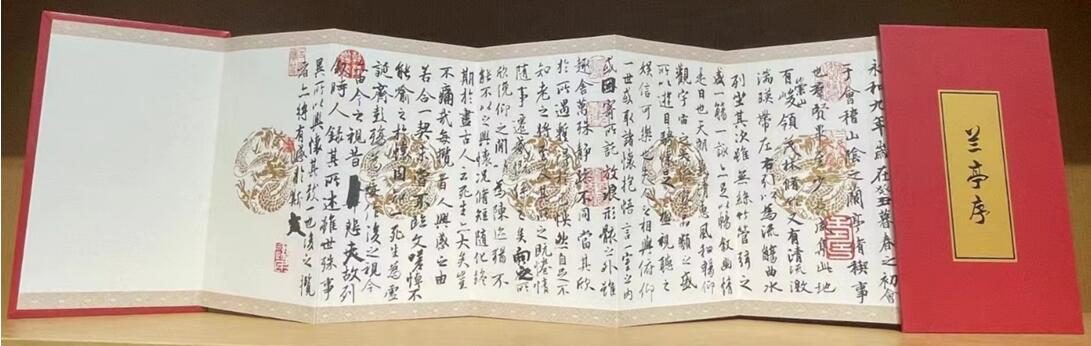 兰亭序
永和九年歲在癸丑暮春之初會
于會稽山陰之蘭亭脩禊事
也羣賢畢至少長咸集此地
有崇山峻領茂林脩竹又有清流激
湍暎帶左右引以為流觴曲水
列坐其次雖無絲竹管弦之
盛一觴一詠亦足以暢敘幽情
是日也天朗氣清惠風和暢仰
觀宇宙之大俯察品類之盛
所以遊目騁懷足以極視聽之
娛信可樂也夫人之相與俯仰
一世或取諸懷抱悟言一室之內
或因寄所託放浪形骸之外雖
趣舍萬殊靜躁不同當其欣
於所遇暫得於己怏然自足不
知老之將至及其所之既惓情
隨事遷感慨係之矣向之所
欣俛仰之閒以為陳迹猶不
能不以之興懷況脩短隨化終
期於盡古人云死生亦大矣豈
不痛哉每攬昔人興感之由
若合一契未嘗不臨文嗟悼不
能喻之於懷固知一死生為虛
誕齊彭殤為妄作後之視今
亦由今之視昔悲夫故列
敘時人錄其所述雖世殊事
異所以興懷其致一也後之攬
者亦將有感於斯文